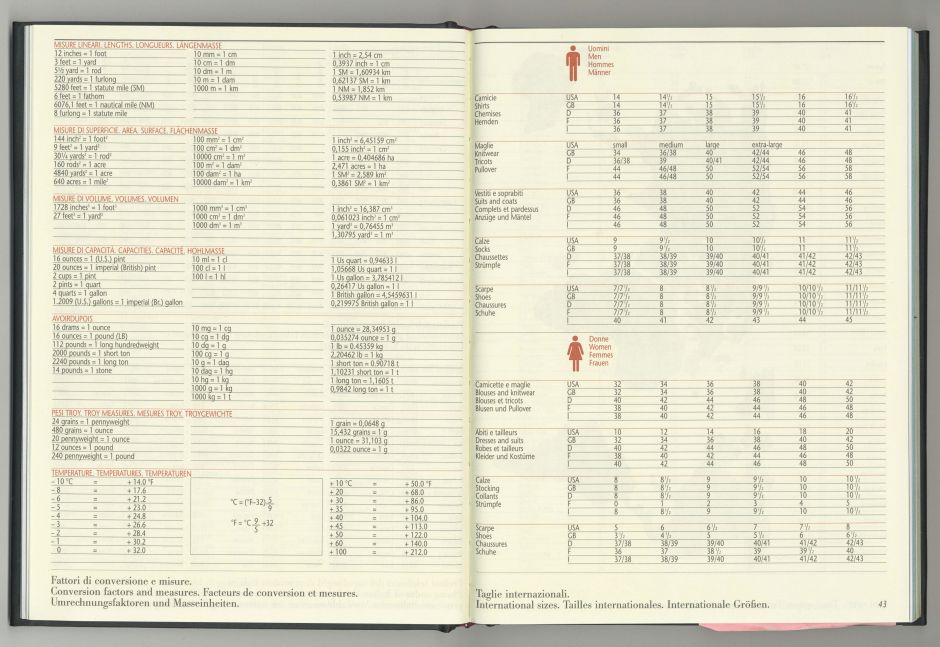 MISURE LINEARI. LENGTHS. LONGUEURS. LÄNGENMASSE
12 inches = 1 foot 10 mm = 1 cm 1 inch = 2,54 cm
3 feet = 1 yard 10 cm = 1 dm 0,3937 inch = 1 cm
5½ yard = 1 rod 10 dm = 1 m 1 SM = 1,60934 km
220 yards = 1 furlong 10 m = 1 dam 0,62137 SM = 1 km
5280 feet = 1 statute mile (SM) 1000 m = 1 km 1 NM = 1,852 km
6 feet = 1 fathom 0,53987 NM = 1 km
6076,1 feet = 1 nautical mile (NM)
8 furlong = 1 statute mile
MISURE DI SUPERFICIE. AREA. SURFACE. FLÄCHENMASSE
144 inch² = 1 foot² 100 mm² = 1 cm² 1 inch² = 6,45159 cm²
9 feet² = 1 yard² 100 cm² = 1 dm² 0,155 inch² = 1 cm²
30¼ yards² = 1 rod² 10000 cm² = 1 m² 1 acre = 0,404686 ha
160 rods² = 1 acre 100 m² = 1 dam² 2,471 acres = 1 ha
4840 yards² = 1 acre 100 dam² = 1 ha 1 SM² = 2,589 km²
640 acres = 1 mile² 10000 dam² = 1 km² 0,3861 SM² = 1 km²
MISURE DI VOLUME. VOLUMES. VOLUMEN
1728 inches³ = 1 foot³ 1000 mm³ = 1 cm³ 1 inch³ = 16,387 cm³
27 feet³ = 1 yard³ 1000 cm³ = 1 dm³ 0,061023 inch³ = 1 cm³
1000 dm³ = 1 m³ 1 yard³ = 0,76455 m³
1,30795 yard³ = 1 m³
MISURE DI CAPACITÀ. CAPACITIES. CAPACITÉ. HOHLMASSE
16 ounces = 1 (U.S.) pint 10 ml = 1 cl 1 Us quart = 0,94633 l
20 ounces = 1 imperial (British) pint 100 cl = 1 l 1,05668 Us quart = 1 l
2 cups = 1 pint 100 l = 1 hl 1 Us gallon = 3,785412 l
2 pints = 1 quart 0,26417 Us gallon = 1 l
4 quarts = 1 gallon 1 British gallon = 4,5459631 l
1.2009 (U.S.) gallons = 1 imperial (Br.) gallon 0,219975 British gallon = 1 l
AVOIRDUPOIS
16 drams = 1 ounce 10 mg = 1 cg 1 ounce = 28,34953 g
16 ounces = 1 pound (LB) 10 cg = 1 dg 0,035274 ounce = 1 g
112 pounds = 1 long hundredweight 10 dg = 1 g 1 lb = 0.45359 kg
2000 pounds = 1 short ton 100 cg = 1 g 2,20462 lb = 1 kg
2240 pounds = 1 long ton 10 g = 1 dag 1 short ton = 0.90718 t
14 pounds = 1 stone 10 dag = 1 hg 1,10231 short ton = 1 t
10 hg = 1 kg 1 long ton = 1,1605 t
1000 g = 1 kg 0,9842 long ton = 1 t
1000 kg = 1 t
PESI TROY. TROY MEASURES. MESURES TROY. TROYGEWICHTE
24 grains = 1 pennyweight 1 grain = 0,0648 g
480 grains = 1 ounce 15,432 grains = 1 g
20 pennyweight = 1 ounce 1 ounce = 31,103 g
12 ounces = 1 pound 0,0322 ounce = 1 g
240 pennyweight = 1 pound
TEMPERATURE. TEMPERATURES. TEMPÉRATURES. TEMPERATUREN
– 10 °C = + 14.0 °F + 10 °C = + 50.0 °F
– 8 = + 17.6 + 20 = + 68.0
– 6 = + 21.2 + 30 = + 86.0
– 5 = + 23.0 + 35 = + 95.0
– 4 = + 24.8 + 40 = + 104.0
– 3 = + 26.6 + 45 = + 113.0
– 2 = + 28.4 + 50 = + 122.0
– 1 = + 30.2 + 60 = + 140.0
0 = + 32.0 + 100 = + 212.0
°C = (°F–32) 5/9
°F = °C 9/5 +32
Fattori di conversione e misure.
Conversion factors and measures. Facteurs de conversion et mesures.
Umrechnungsfaktoren und Masseinheiten.
Uomini
Men
Hommes
Männer
Camicie USA 14 14½ 15 15½ 16 16½
Shirts GB 14 14½ 15 15½ 16 16½
Chemises D 36 37 38 39 40 41
Hemden F 36 37 38 39 40 41
I 36 37 38 39 40 41
Maglie USA small medium large extra-large
Knitwear GB 34 36/38 40 42/44 46 48
Tricots D 36/38 39 40/41 42/44 46 48
Pullover F 44 46/48 50 52/54 56 58
I 44 46/48 50 52/54 56 58
Vestiti e soprabiti USA 36 38 40 42 44 46
Suits and coats GB 36 38 40 42 44 46
Complets et pardessus D 46 48 50 52 54 56
Anzüge und Mäntel F 46 48 50 52 54 56
I 46 48 50 52 54 56
Calze USA 9 9½ 10 10½ 11 11½
Socks GB 9 9½ 10 10½ 11 11½
Chaussettes D 37/38 38/39 39/40 40/41 41/42 42/43
Strümpfe F 37/38 38/39 39/40 40/41 41/42 42/43
I 37/38 38/39 39/40 40/41 41/42 42/43
Scarpe USA 7/7½ 8 8½ 9/9½ 10/10½ 11/11½
Shoes GB 7/7½ 8 8½ 9/9½ 10/10½ 11/11½
Chaussures D 7/7½ 8 8½ 9/9½ 10/10½ 11/11½
Schuhe F 7/7½ 8 8½ 9/9½ 10/10½ 11/11½
I 40 41 42 43 44 45
Donne
Women
Femmes
Frauen
Camicette e maglie USA 32 34 36 38 40 42
Blouses and knitwear GB 32 34 36 38 40 42
Blouses et tricots D 40 42 44 46 48 50
Blusen und Pullover F 38 40 42 44 46 48
I 38 40 42 44 46 48
Abiti e tailleurs USA 10 12 14 16 18 20
Dresses and suits GB 32 34 36 38 40 42
Robes et tailleurs D 40 42 44 46 48 50
Kleider und Kostüme F 38 40 42 44 46 48
I 40 42 44 46 48 50
Calze USA 8 8½ 9 9½ 10 10½
Stocking GB 8 8½ 9 9½ 10 10½
Collants D 8 8½ 9 9½ 10 10½
Strümpfe F 0 1 2 3 4 5
I 8 8½ 9 9½ 10 10½
Scarpe USA 5 6 6½ 7 7½ 8
Shoes GB 3½ 4½ 5 5½ 6 6½
Chaussures D 37/38 38/39 39/40 40/41 41/42 42/43
Schuhe F 36 37 38½ 39 39½ 40
I 37/38 38/39 39/40 40/41 41/42 42/43
Taglie internazionali.
International sizes. Tailles internationales. Internationale Größen.
43